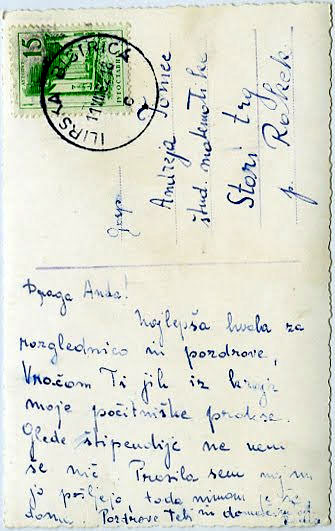 15
ЈУГОСЛАВИЈА
ILIRSKA BISTRICA
Gosp.
Andreja Tomec
štud. matematike
Stari trg
p. Rakek
Draga Anda!
Najlepša hvala za
razglednico in pozdrave,
Vračam Ti jih iz kraja
moje počitniške prakse.
Glede štipendije ne vem
še nič. Prosila sem naj mi
jo pošljejo, toda nimam je še
doma. Pozdrave Teti in domačim